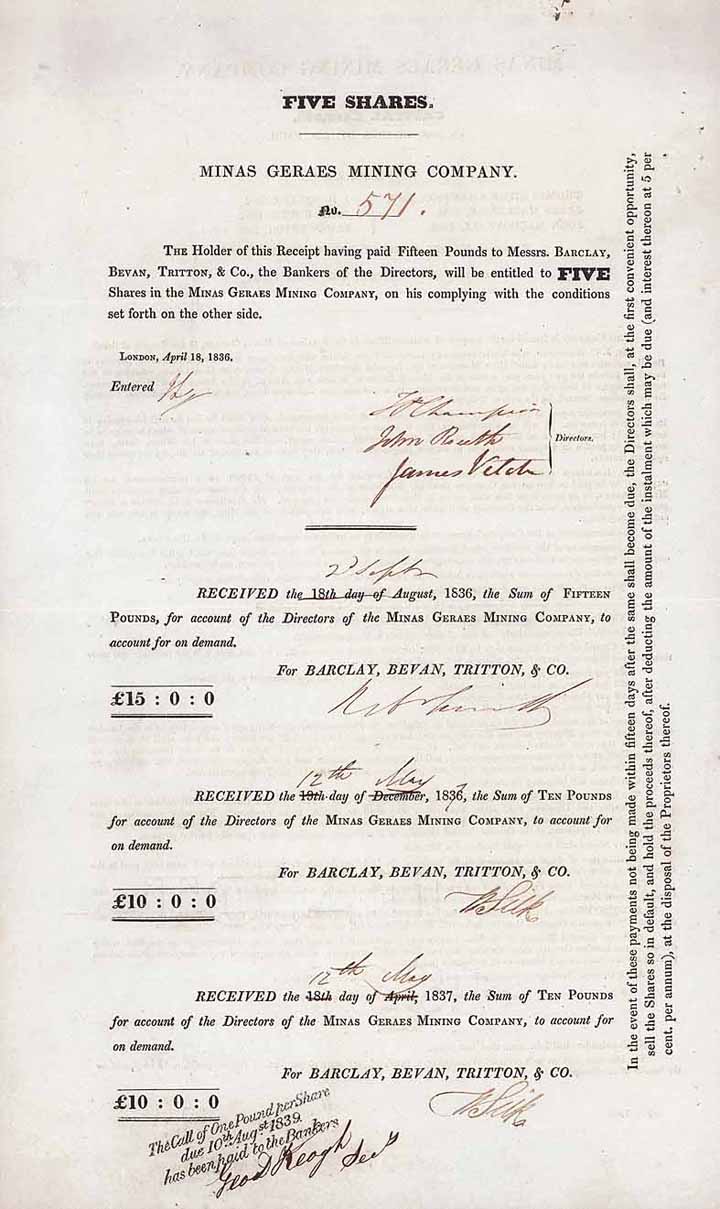 FIVE SHARES.
MINAS GERAES MINING COMPANY.
No. 571.
THE Holder of this Receipt having paid Fifteen Pounds to Messrs. BARCLAY,
BEVAN, TRITTON, & Co., the Bankers of the Directors, will be entitled to FIVE
Shares in the MINAS GERAES MINING COMPANY, on his complying with the conditions
set forth on the other side.
LONDON, April 18, 1836.
Entered
Champion
John Routh
James Vetch
Directors.
2d Septr
RECEIVED the 18th day of August, 1836, the Sum of FIFTEEN
POUNDS, for account of the Directors of the MINAS GERAES MINING COMPANY, to
account for on demand.
For BARCLAY, BEVAN, TRITTON, & CO.
£15 : 0 : 0
12th May
RECEIVED the 18th day of December, 1837, the Sum of TEN POUNDS
for account of the Directors of the MINAS GERAES MINING COMPANY, to account for
on demand.
For BARCLAY, BEVAN, TRITTON, & CO.
£10 : 0 : 0
W Silk
12th May
RECEIVED the 18th day of April, 1837, the Sum of TEN POUNDS
for account of the Directors of the MINAS GERAES MINING COMPANY, to account for
on demand.
For BARCLAY, BEVAN, TRITTON, & CO.
£10 : 0 : 0
W Silk
The Call of One Pound per Share
due 10th Augst 1839.
has been paid to the Bankers
Geo D Keogh Secy
In the event of these payments not being made within fifteen days after the same shall become due, the Directors shall, at the first convenient opportunity,
sell the Shares so in default, and hold the proceeds thereof, after deducting the amount of the instalment which may be due (and interest thereon at 5 per
cent. per annum), at the disposal of the Proprietors thereof.